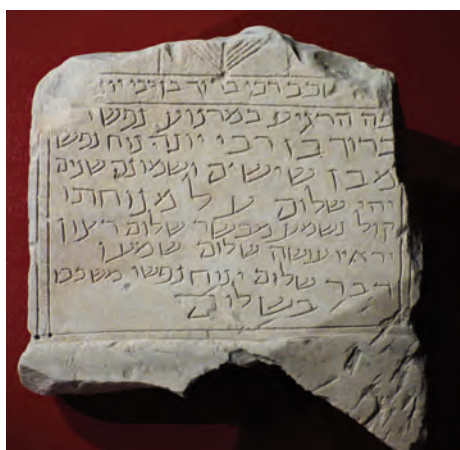 שכב רבי ברוך בן רבי יונ
פה הרגיע במרגוע נפש ר
ברוך בן רבי יונה נוח נפש
מבן שישים ושמונה שנים
יהי שלום על מנוחתו
קול נשמע מבשר שלום רצון
יראיו עושה שלום
דבר שלום ינוח נפשו משכבו
בשלום